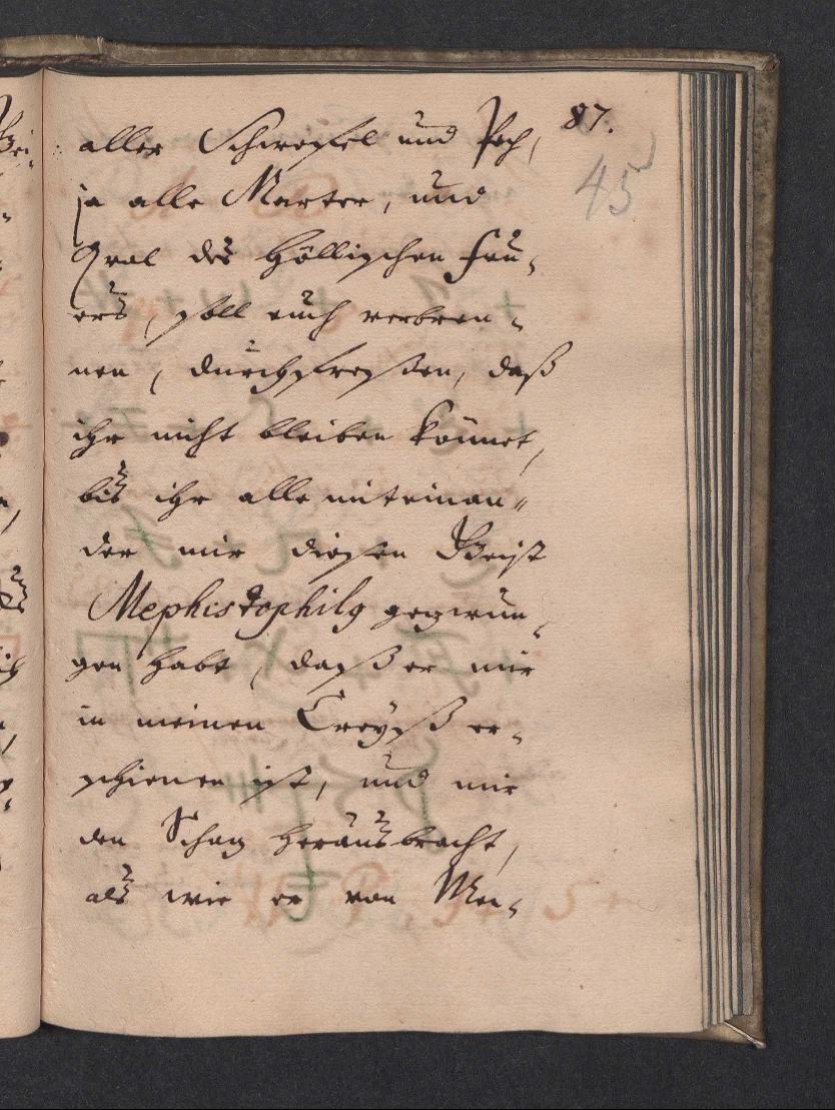 87.
45
aller Schwefel und Pech,
ja alle Marter, und
Qval des Höllischen Feu-
ers, soll euch verbren-
nen, durchfressen, daß
ihr nicht bleiben könnet,
bis ihr alle miteinan-
der mir diesen Geist
Mephistophilg gezwun-
gen habt, daß er mir
in meinen Creyß er-
schienen ist, und mir
den Schaz herausbracht,
als wie er von Men-